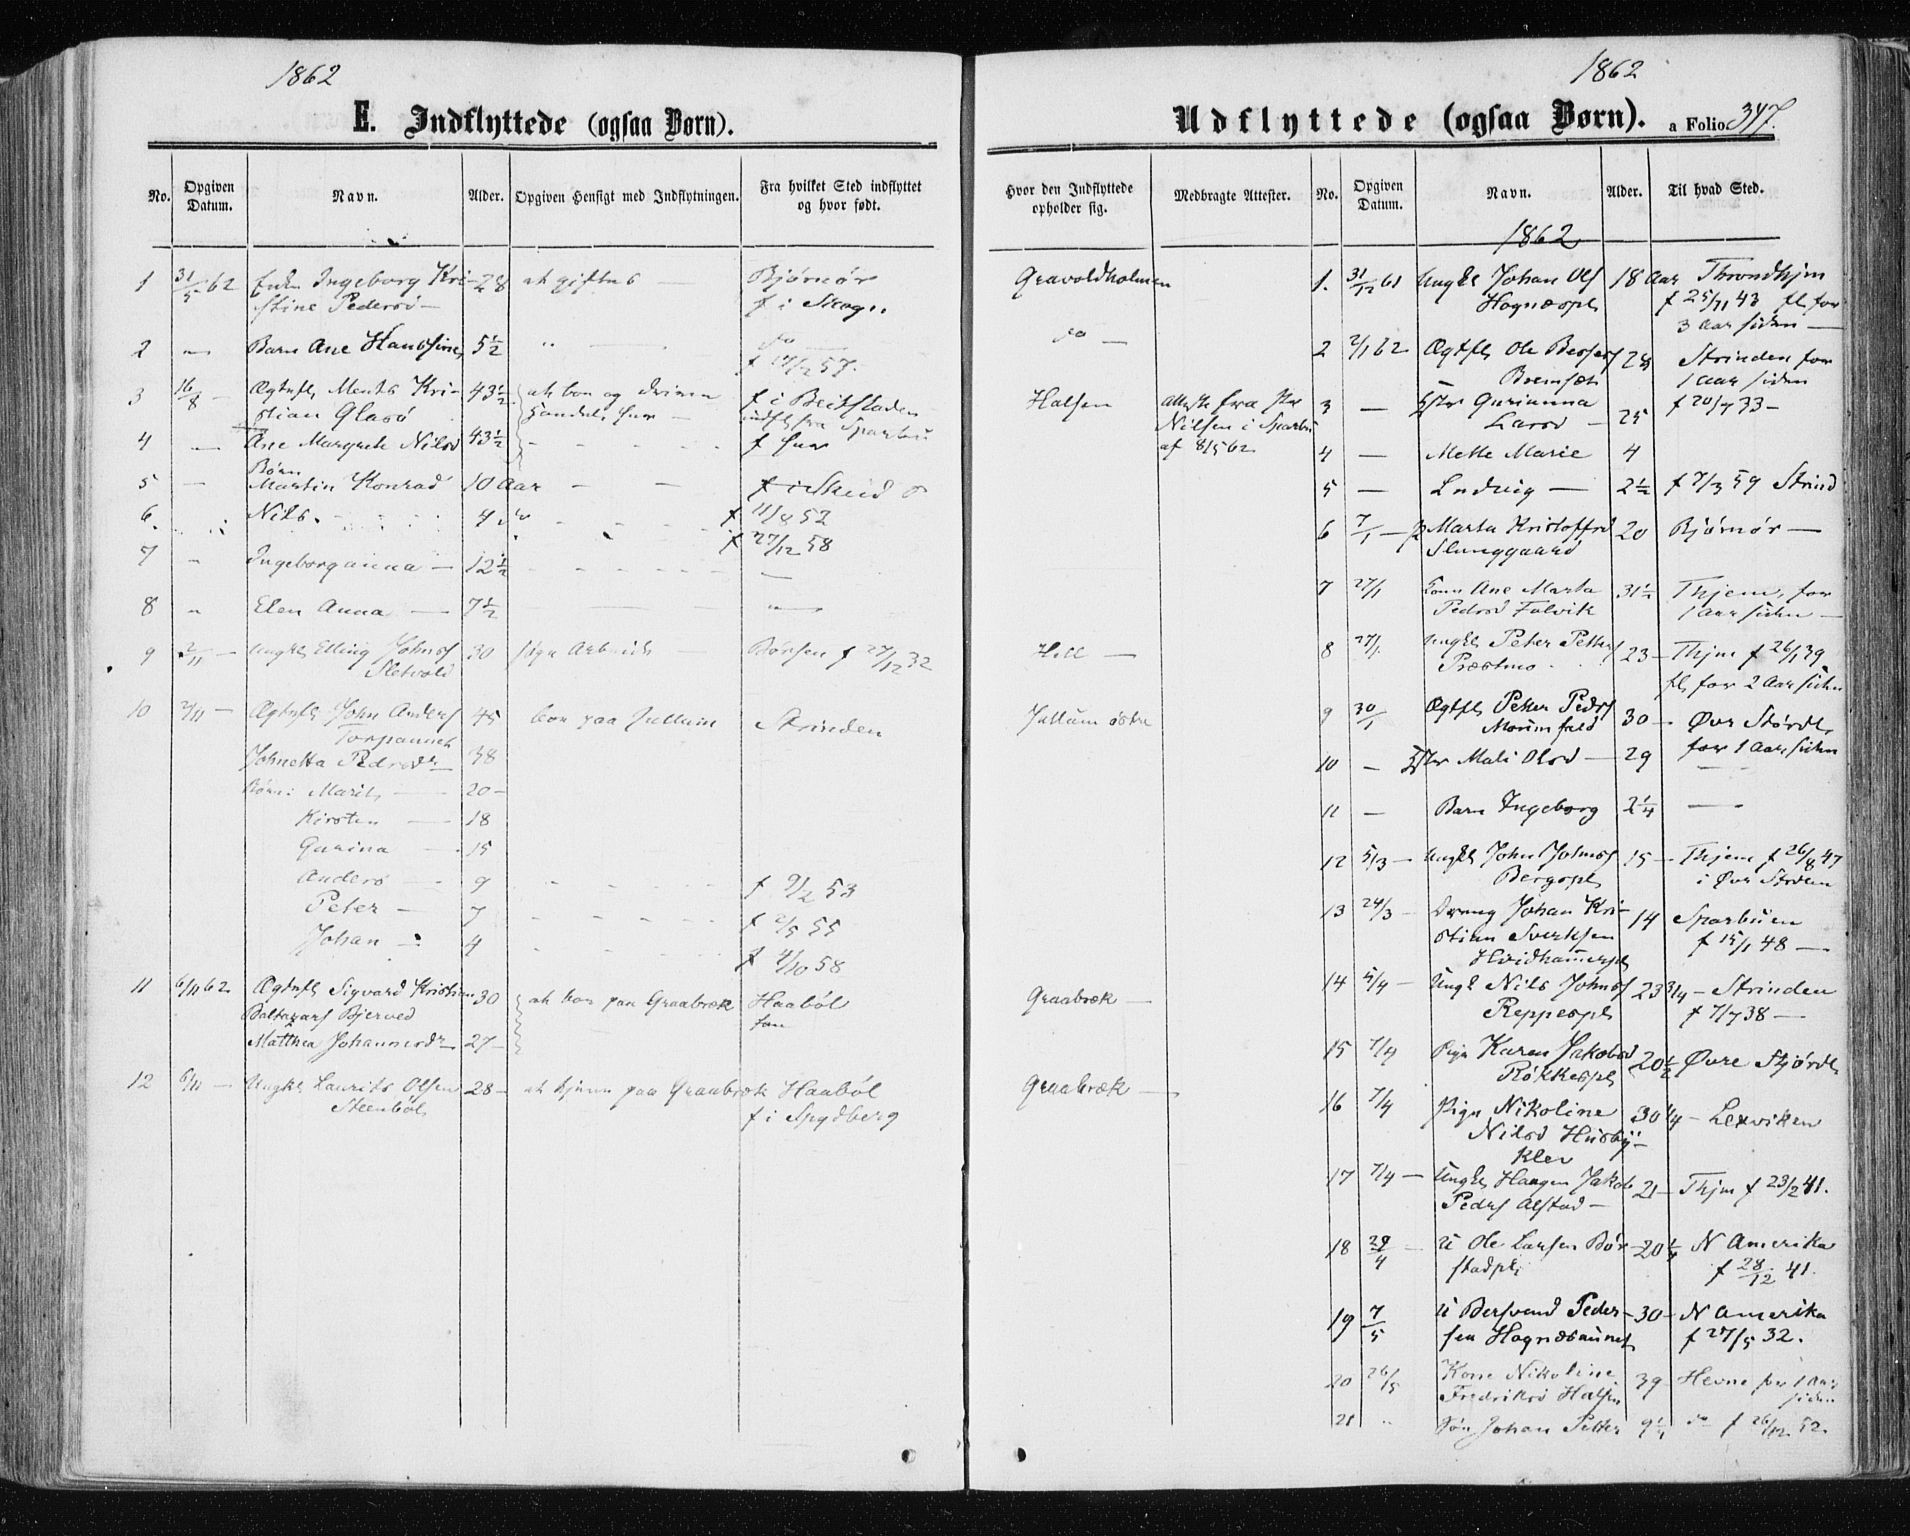 1862
E. Indflyttede (ogsaa Børn).
No. Opgiven Datum. Navn. Alder. Opgiven Hensigt med Indflytningen. Fra hvilket Sted indflyttet og hvor født.
1 31/5 62 Ingeborg Kri- 28 at giftes — Bjørnør
stine Pedersd — f i Skogn
2 " Barn Ane Hansine 5½ " — do
f 17/12 57.
3 16/8 — Ments Kri- 43½ at boe og drive f i Beitstaden
stian Glasø Handel her — indfl fra Sparbu
4 — Ane Margrete Nilsd 43½ - - - - f her
Børn
5 — Martin Konrad 10 Aar — — f i Skeid
6. Nils. 4 do - - - f 11/8 52
f 27/12 58
7 " Ingeborganna — 12½ - - - —
8 " Elen Anna — 7½ — — —
9 2/11 — Ungkl Elling Johnsf 30 Børsen f 27/12 32
Sletvold
10 2/11 — John Andersf 45 boe paa Jullum Strinden
Torpaunet
Johnetta Pedersdr 38
Børn: Marit — 20 —
Kirsten — 18
Gurina — 15
Anders — 9 - - - f 9/2 53
Peter — 7 - - - f 2/5 55
Johan — 4 - - - f 4/10 58
11 6/11 62. Sigvard Kristian 30 at boe paa Graabræk Haabøl
Baltazars Bjerved
Matthea Johannesdr 27 —
12 6/11 — Ungkl Laurits Olsen 28 — at tjene paa Graabræk Haabøl
Steenbøl f i Spydberg
1862
Udflyttede (ogsaa Børn). a Folio 347.
Hvor den Indflyttede opholder sig. Medbragte Attester. No. Opgiven Datum. Navn. Alder. Til hvad Sted.
1862
Gravoldholmen
do —
Halsen Attest fra
Nilsen i Sparbu
af 8/5 62
Hell —
Jullum østre
Graabræk —
Graabræk —
1. 31/12 61 Ungkl Johan Ols 18 Aar Throndhjem
Hognæspl f 25/11 43 fl for
3 Aar siden —
2 2/1 62 Ole Berserf 28 Strinden for
1 Aar siden
3 — Gurianna f 20/7 33 —
Larsd — 25
4 — Mette Marie 4
5 — Ludvig — 2½ f 7/3 59 Strind
6 7/1 — p Marta Kristoffrd 20 Bjørnør —
Slunggaard
7 27/1 Ane Marta 31½ Thjem, for
Pedersd Falvik 1 Aar siden —
8 27/1. Ungkl Peter Petters 23 — Thjm f 26/1 39
Præstmo fl for 2 Aar siden
9 30/1 Petter Pedrsf 30 — Øvr Størdl
for 1 Aar siden
10 — Mali Olsd — 29 —
11 — Barn Ingeborg 2¼ —
12 5/3 — Ungkl John Johnsf 15 — Thjem f 26/8 47
Bergspl i Øvr Strden
13 24/3 — Dreng Johan Kri- 14 Sparbuen
stian Sverksen f 15/1 48 —
Hvidhammerpl
14 5/4 — Ungk Nils Johnsf 23¾ — Strinden
Reppespl f 7/7 38 —
15 7/4 Pige Karen Jakobsd 20½ Øvre Stjørdl
Røkkespl
16 7/4 Pige Nikoline 30¼ — Lexviken
Nilsd Husby-
klev
17 7/4 — Ungkl Haagen Jakob 21 — Thjm f 23/2 41.
Pedrsf Alstad —
18 29/4 — U Ole Larsen Bør- 20¼ N Amerika
stadpl f 28/12 41.
19 7/5 U Bersvend Peder- 30 — N Amerika
sen Hognæsaunet f 27/5 32.
20 26/5 Kone Nikoline 39 — Hevne for 1 Aar
Fredriksd Halsen siden
21 " Søn Johan Petter 9½ do f 26/12 52.